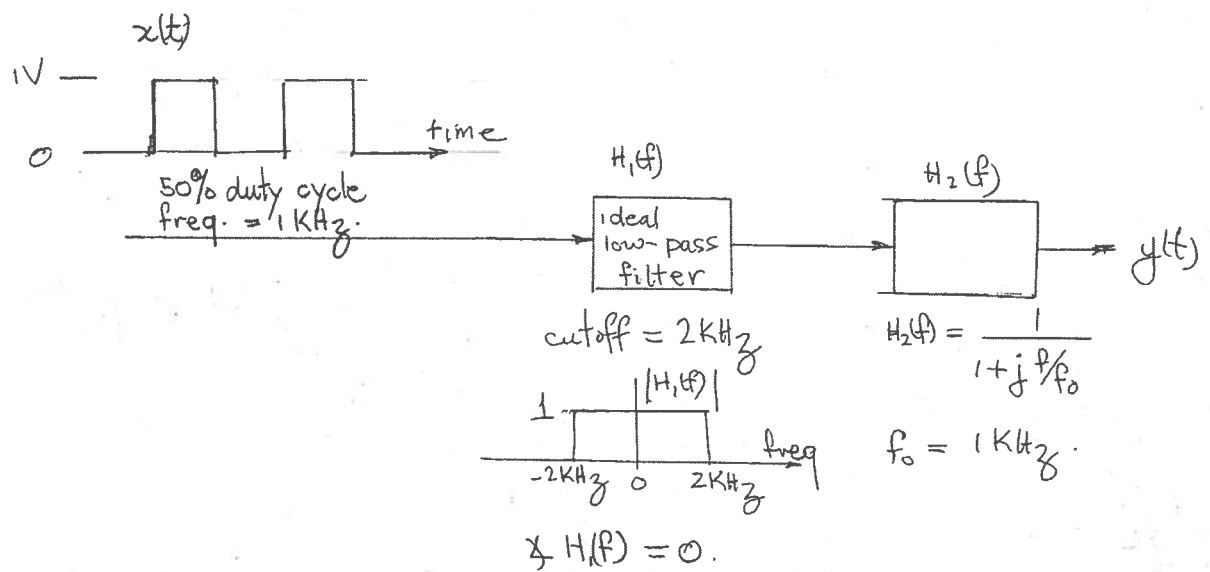 x(t)
1V
0
time
50% duty cycle
freq. = 1 KHz.
H₁(f)
ideal
low-pass
filter
cutoff = 2KHz
|H₁(f)|
1
freq
-2KHz 0 2KHz
∠ H₁(f) = 0.
H₂(f)
y(t)
H₂(f) = 1 / (1 + j f/f₀)
f₀ = 1 KHz.